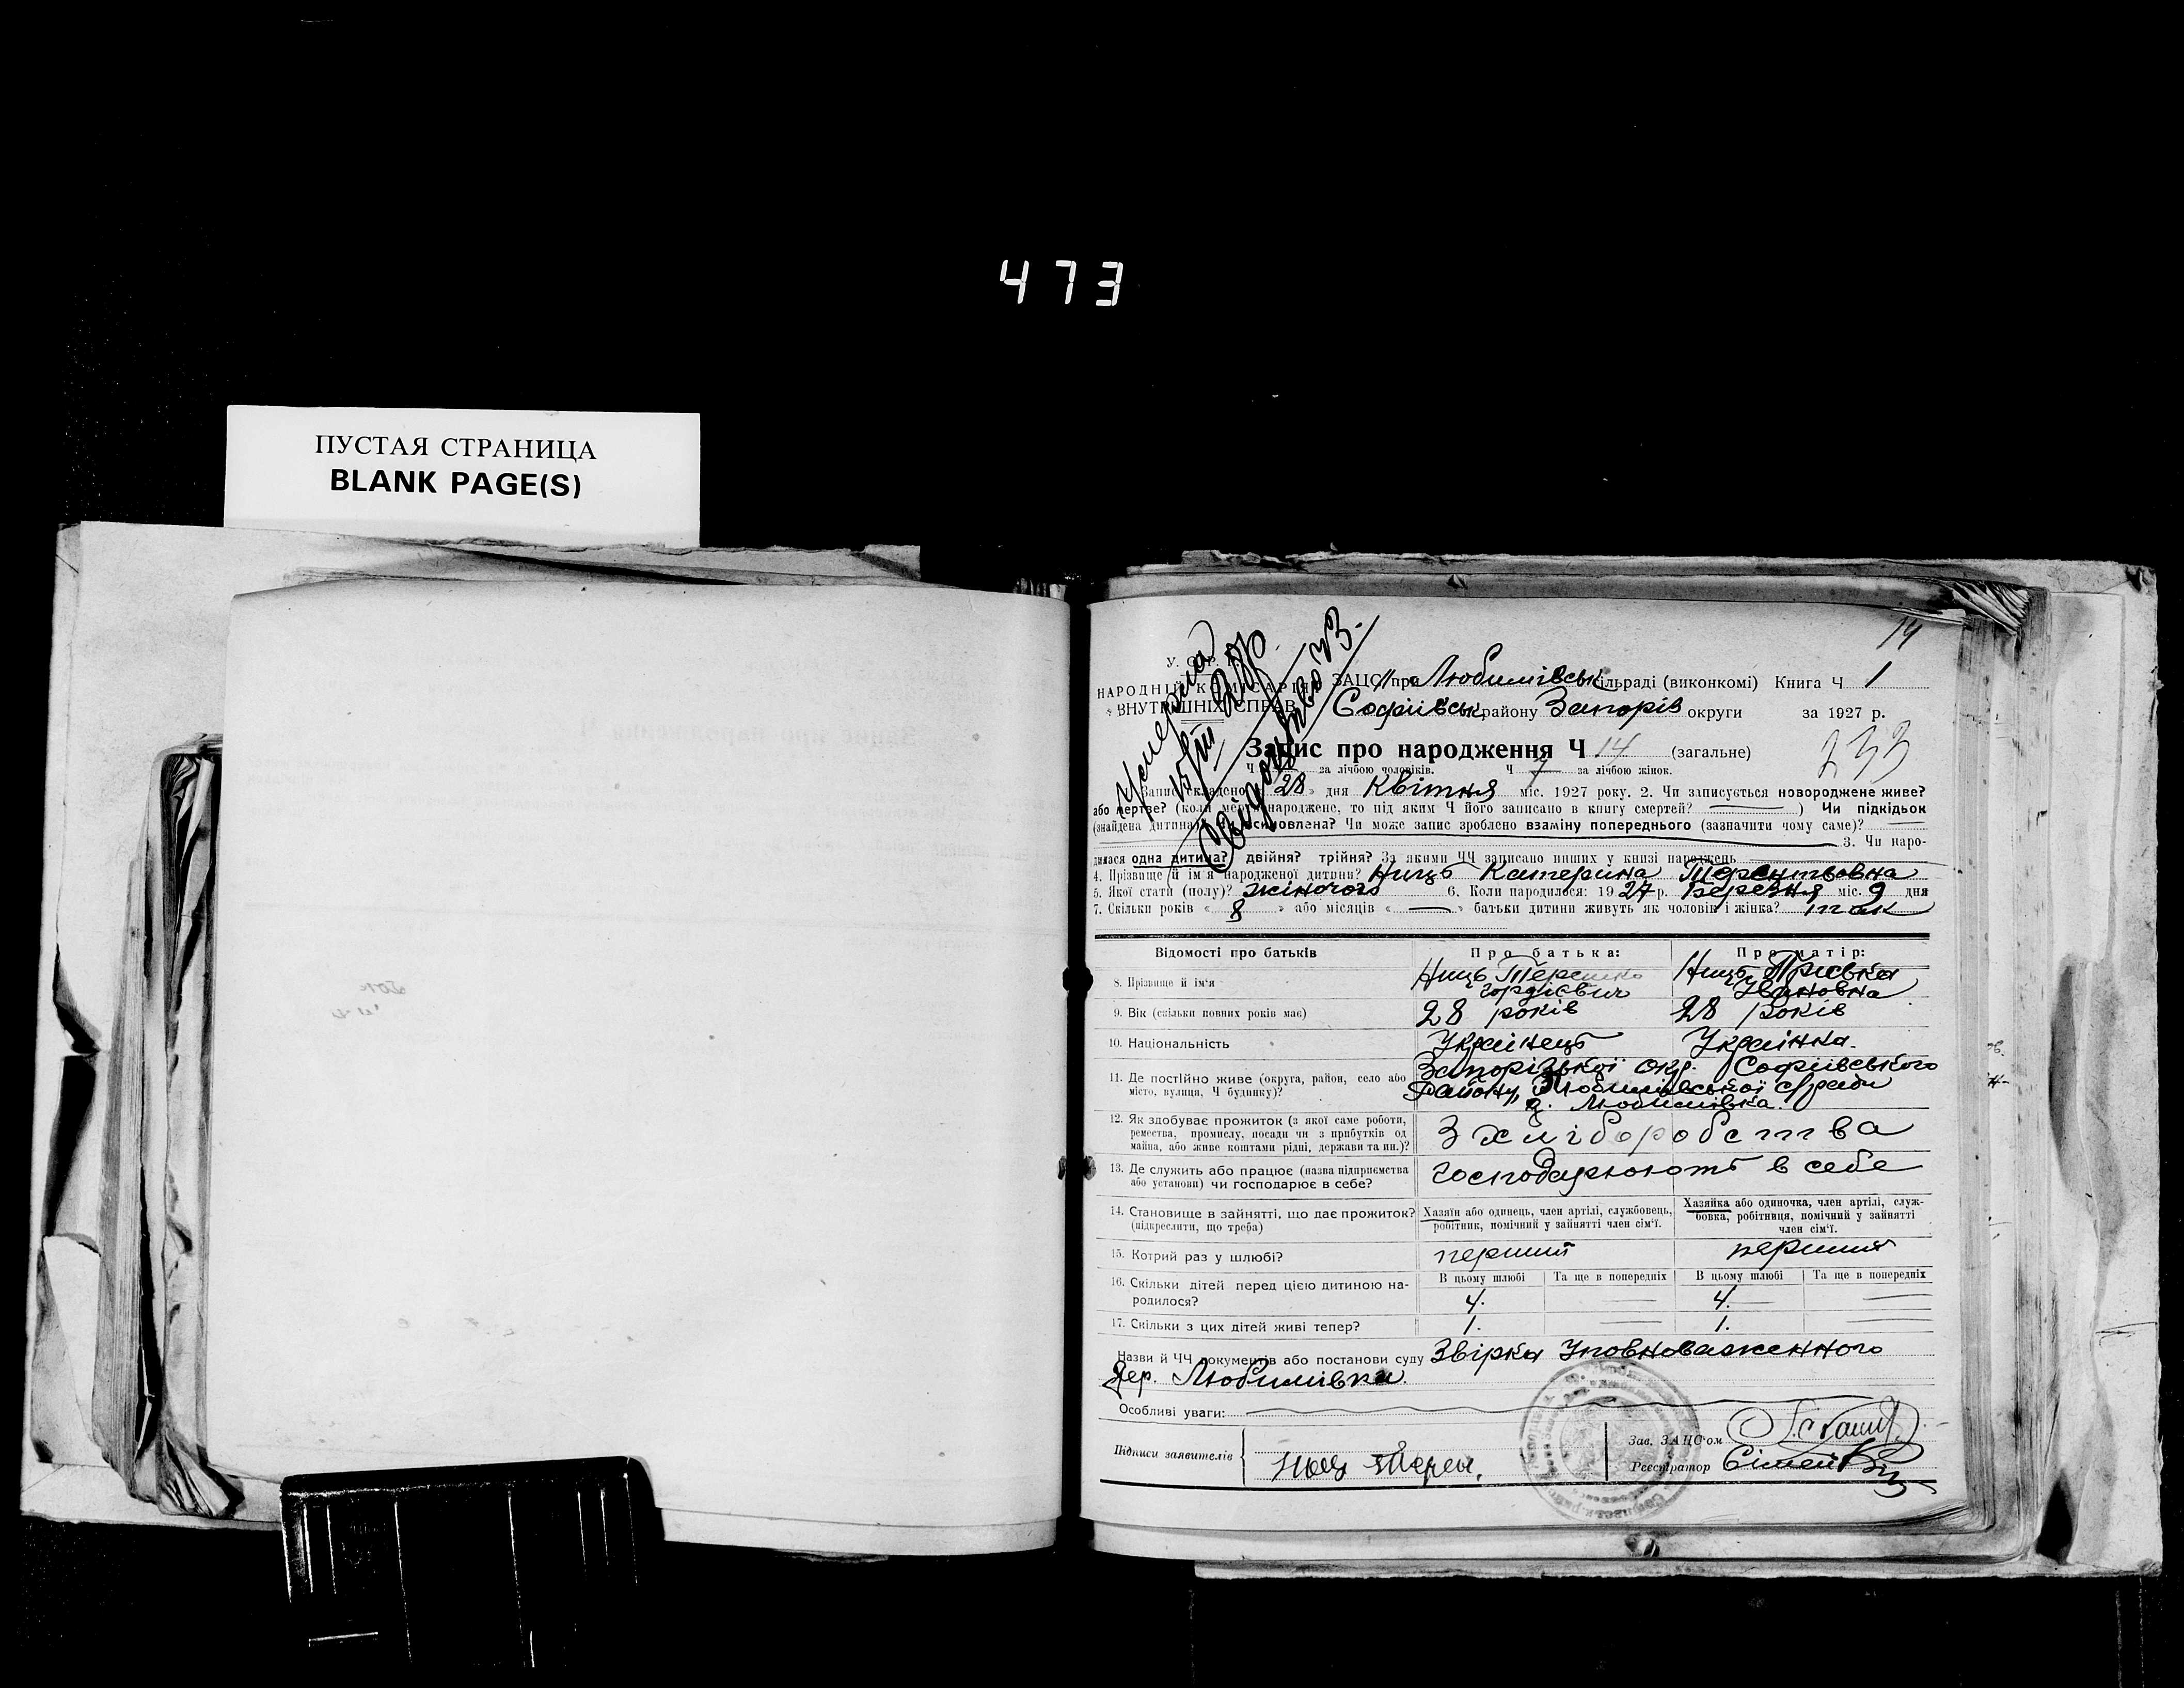 473
ПУСТАЯ СТРАНИЦА
BLANK PAGE(S)
14
У. С. Р. Р.
НАРОДНІЙ КОМІСАРІЯТ
ВНУТРІШНІХ СПРАВ
ЗАЦС при Любимівськ сільраді (виконкомі) Книга Ч 1
Софіївськ району Запоріз округи за 1927 р.
Запис про народження Ч 14 (загальне)
233
Ч за лічбою чоловіків. Ч 7 за лічбою жінок.
Запис складено 28 дня Квітня міс. 1927 року. 2. Чи записується новороджене живе?
або мертве? (коли мертвонароджене, то під яким Ч його записано в книгу смертей? ) Чи підкідьок
(знайдена дитина)? Чи всиновлена? Чи може запис зроблено взаміну попереднього (зазначити чому саме)?
3. Чи наро-
дилася одна дитина? двійня? трійня? За якими ЧЧ записано инших у книзі народжень
4. Прізвище й ім'я народженої дитини? Ниць Катерина Терентьовна
5. Якої статі (полу)? жіночого 6. Коли народилося: 1927 р. Березня міс. 9 дня
7. Скільки років « 8 » або місяців « — » батьки дитини живуть як чоловік і жінка? так
Відомості про батьків Про батька: Про матір:
8. Прізвище й ім'я Ниць Терешко Гордієвич Ниць Ївановна
9. Вік (скільки повних років має) 28 років 28 років
10. Національність Українець Українка.
11. Де постійно живе (округа, район, село або місто, вулиця, Ч будинку)? Запорізької окр. Софиївського
району, Любимівської с/ради
Любимівка.
12. Як здобуває прожиток (з якої саме роботи, ремества, промислу, посади чи з прибутків од майна, або живе коштами рідні, держави та ин.)? З хліборобства
13. Де служить або працює (назва підприємства або установи) чи господарює в себе? господарюють в себе
14. Становище в зайнятті, що дає прожиток? (підкреслити, що треба) Хазяїн або одинець, член артілі, службовець, робітник, помічний у зайнятті член сім'ї. Хазяйка або одиночка, член артілі, служ-бовка, робітниця, помічний у зайнятті член сім'ї.
15. Котрий раз у шлюбі? перший перший
16. Скільки дітей перед цією дитиною на-родилося? В цьому шлюбі Та ще в попередніх В цьому шлюбі Та ще в попередніх
4. 4.
17. Скільки з цих дітей живі тепер? 1. 1.
Назви й ЧЧ документів або постанови суду Звірка Уповноваженного
дер. Любимівки.
Особливі уваги:
Підписи заявителів
Зав. ЗАЦС'ом
Реєстратор